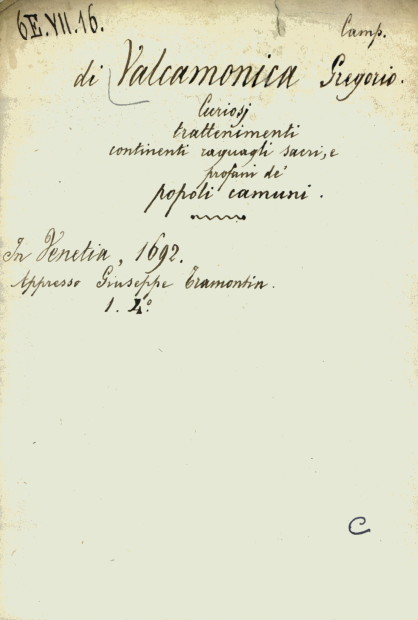 6E.VII.16.
Camp.
di Valcamonica Gregorio.
Curiosj
trattenimenti
continenti raguagli sacri, e
profani de'
popoli camuni.
In Venetia, 1692.
Appresso Giuseppe Tramontin.
1. 4°.
C